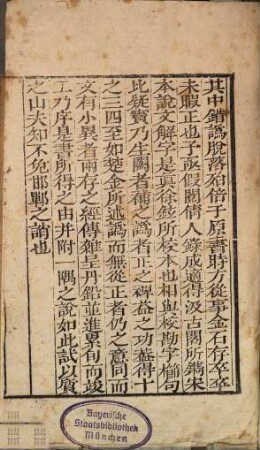 其中錯譌脫落殆倍子原書時方從事金石存卒卒
未暇正也予亟假閣倩人錄成適得汲古閣所鐫宋
本說文解字是真徐鉉所校本也相與校勘字櫛句
比疑竇乃生闕者補之譌者正之裨益之功蓋得十
之三四至如楚金所述譌而無從正者仍之意同而
文有小異者兩存之經傳雜呈丹鉛並進累旬而竣
工乃序是書所得之由并附一隅之說如此試以質
之山夫知不免邯鄲之誚也
Bayerische
Staatsbibliothek
München